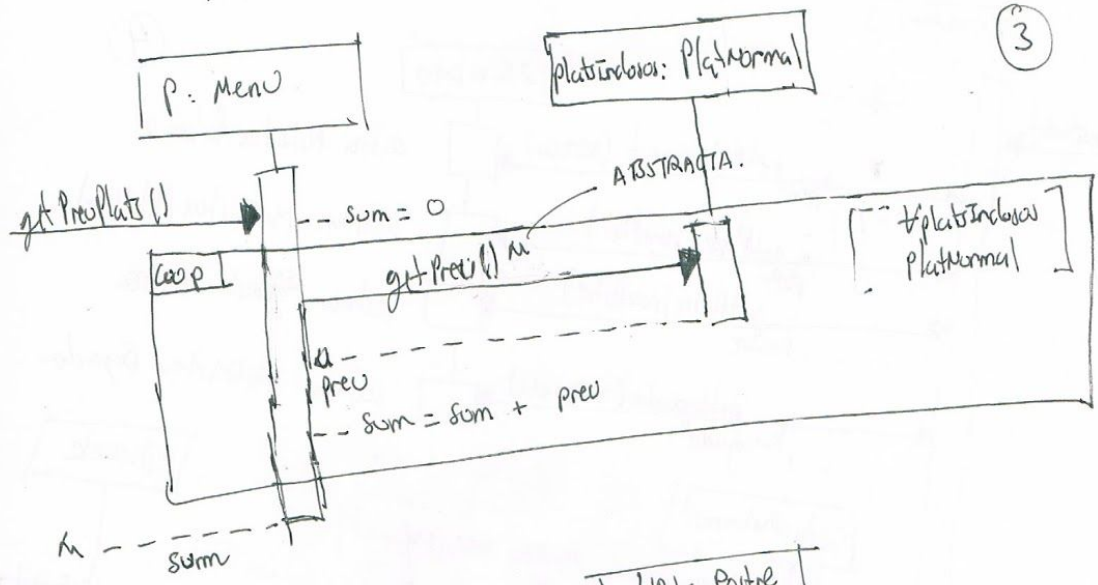 3
P: Menu
platsInclosos: PlatNormal
ABSTRACTA.
getPreuPlats()
sum = 0
loop
getPreu()
∀platsInclosos
platNormal
preu
sum = sum + preu
sum